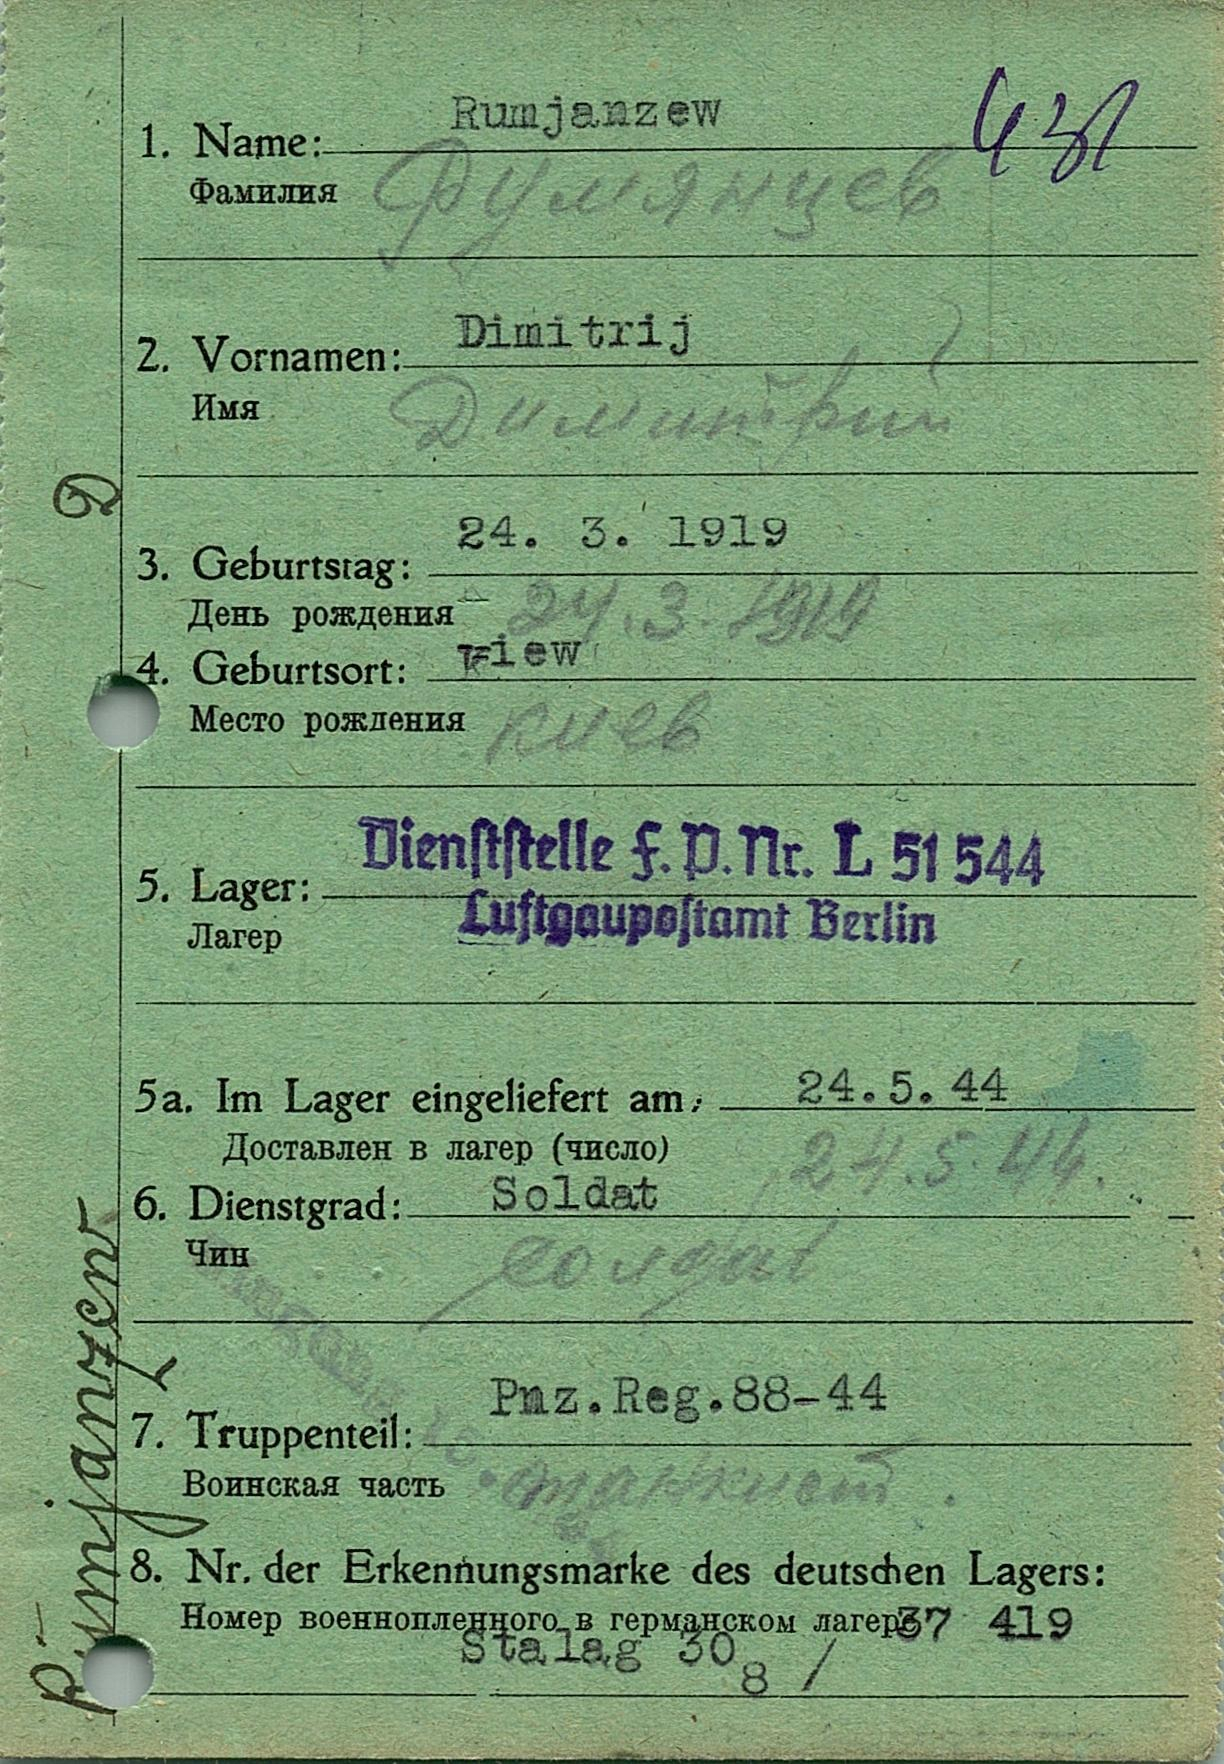 Rumjanzew
1. Name:
Фамилия
Румянцев
Dimitrij
2. Vornamen:
Имя
Димитрий
24. 3. 1919
3. Geburtstag:
День рождения
24.3.1919
Kiew
4. Geburtsort:
Место рождения
киев
Dienststelle F.P.Nr. L 51 544
5. Lager:
Luftgaupostamt Berlin
Лагер
5a. Im Lager eingeliefert am: 24.5.44
Доставлен в лагер (число)
24.5.44.
6. Dienstgrad: Soldat
Чин
солдат
Pnz.Reg.88-44
7. Truppenteil:
Воинская часть
танкист.
8. Nr. der Erkennungsmarke des deutschen Lagers:
Номер военнопленного в германском лагере 37 419
Stalag 30 8 /
Rumjanzew D